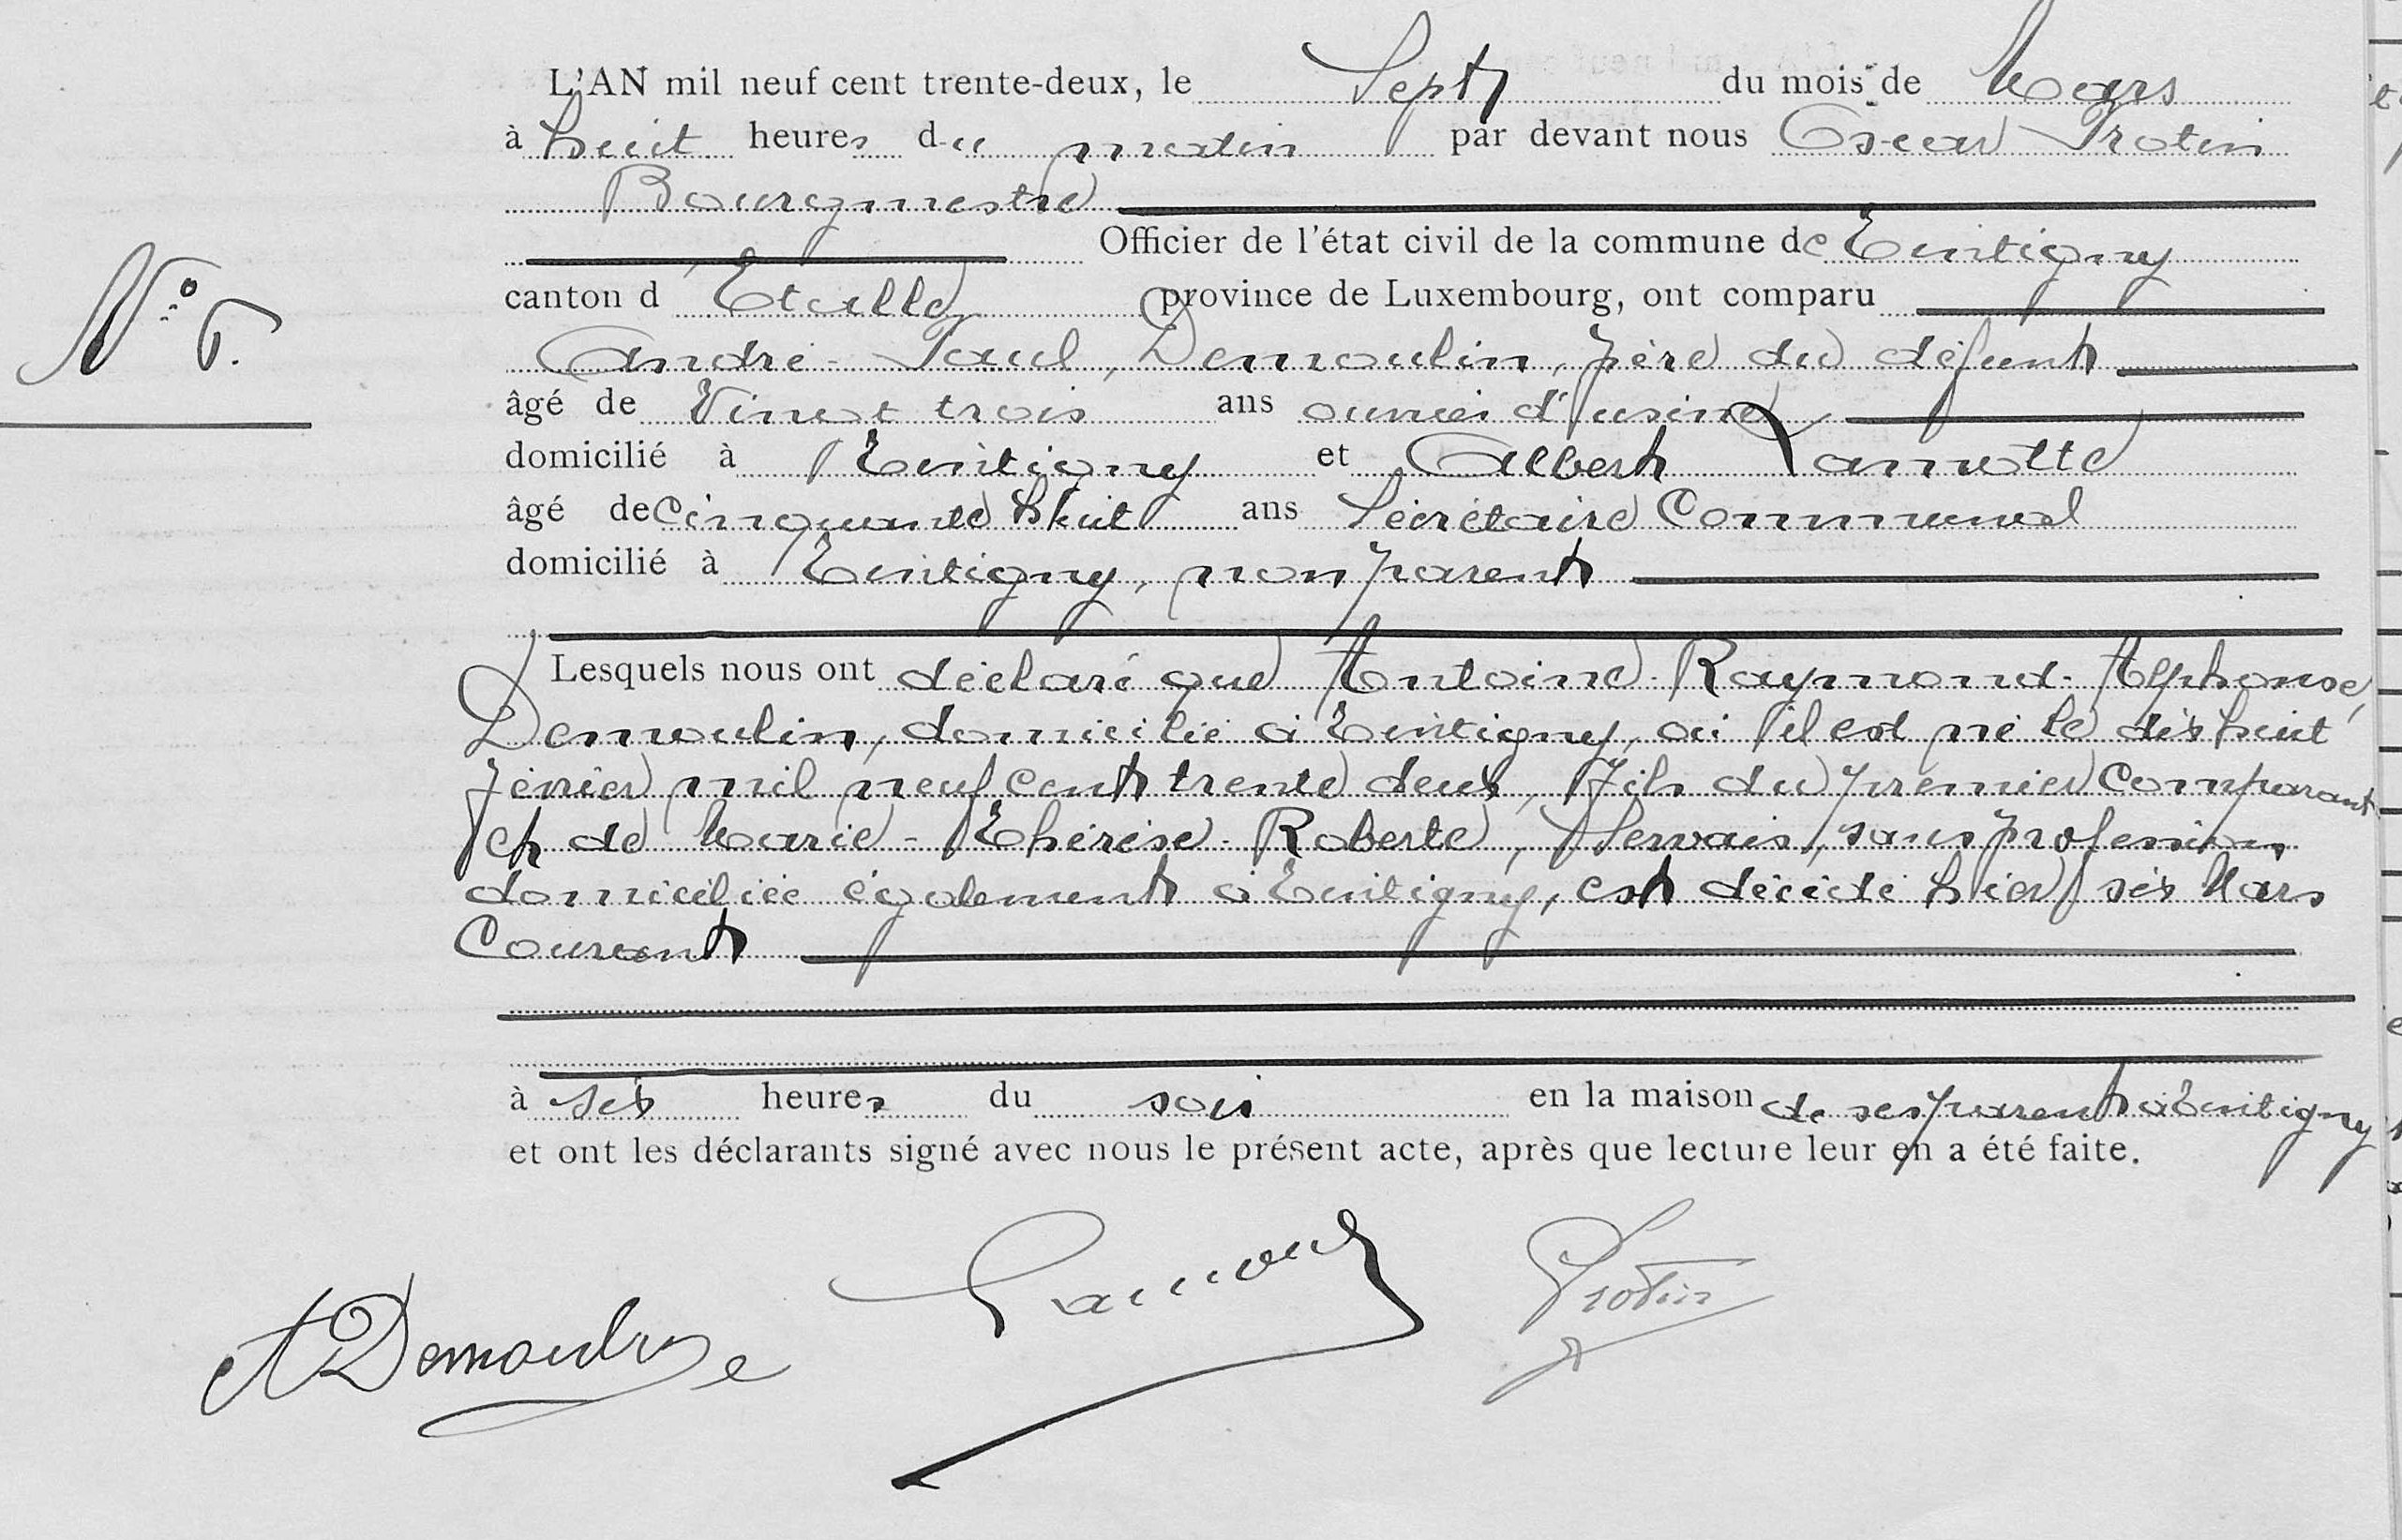 L'AN mil neuf cent trente-deux, le Sept du mois de Mars
à huit heures du matin par devant nous Oscar Protin
Bourgmestre
Officier de l'état civil de la commune de Tintigny
N° 6.
canton d Etalle province de Luxembourg, ont comparu
André-Paul, Demoulin, père du défunt
âgé de Vingt trois ans ouvrier d'usine,
domicilié à Tintigny et Albert Lamotte
âgé de Cinquante huit ans Secrétaire Communal
domicilié à Tintigny, non parent
Lesquels nous ont déclaré que Antoine-Raymond-Alphonse,
Demoulin, domicilié à Tintigny, où il est né le dix huit
février mil neuf cent trente deux, fils du premier Comparant
et de Marie-Thérèse-Roberte, Servais, sans profession,
domiciliée également à Tintigny, est décédé hier six Mars
Courant
à six heures du soir en la maison de ses parents à Tintigny
et ont les déclarants signé avec nous le présent acte, après que lecture leur en a été faite.
A Demoulin Lamotte Protin